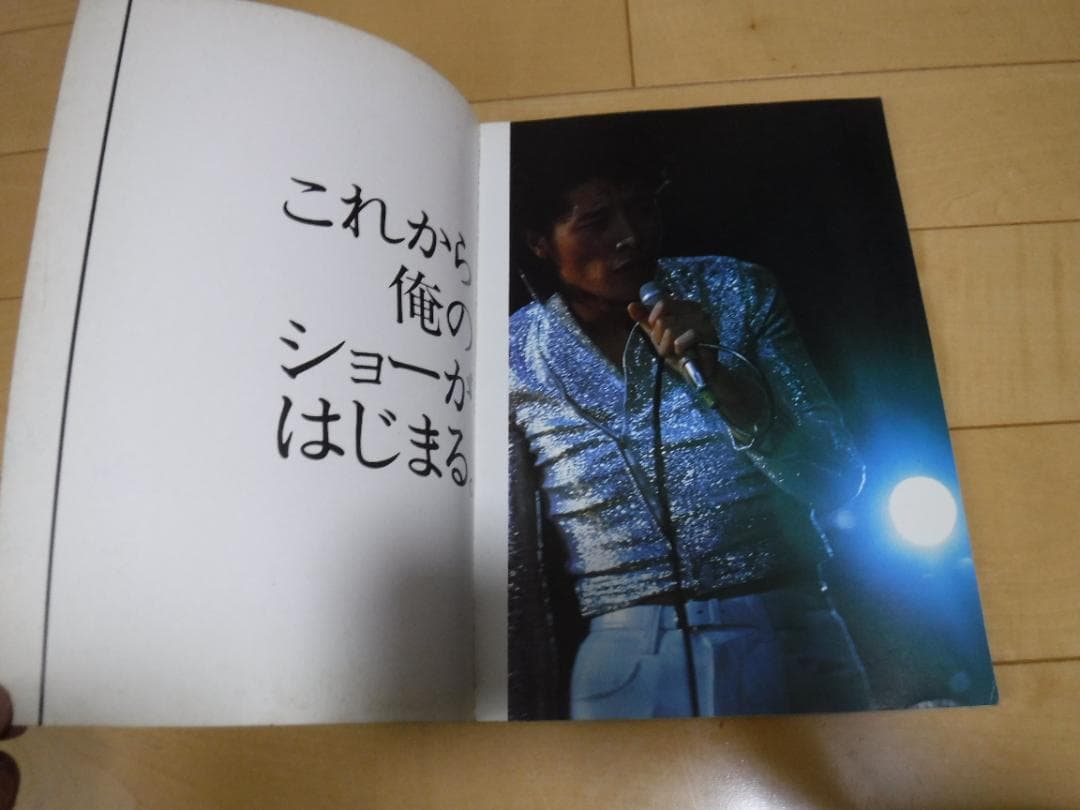 これから
俺の
ショーが
はじまる。